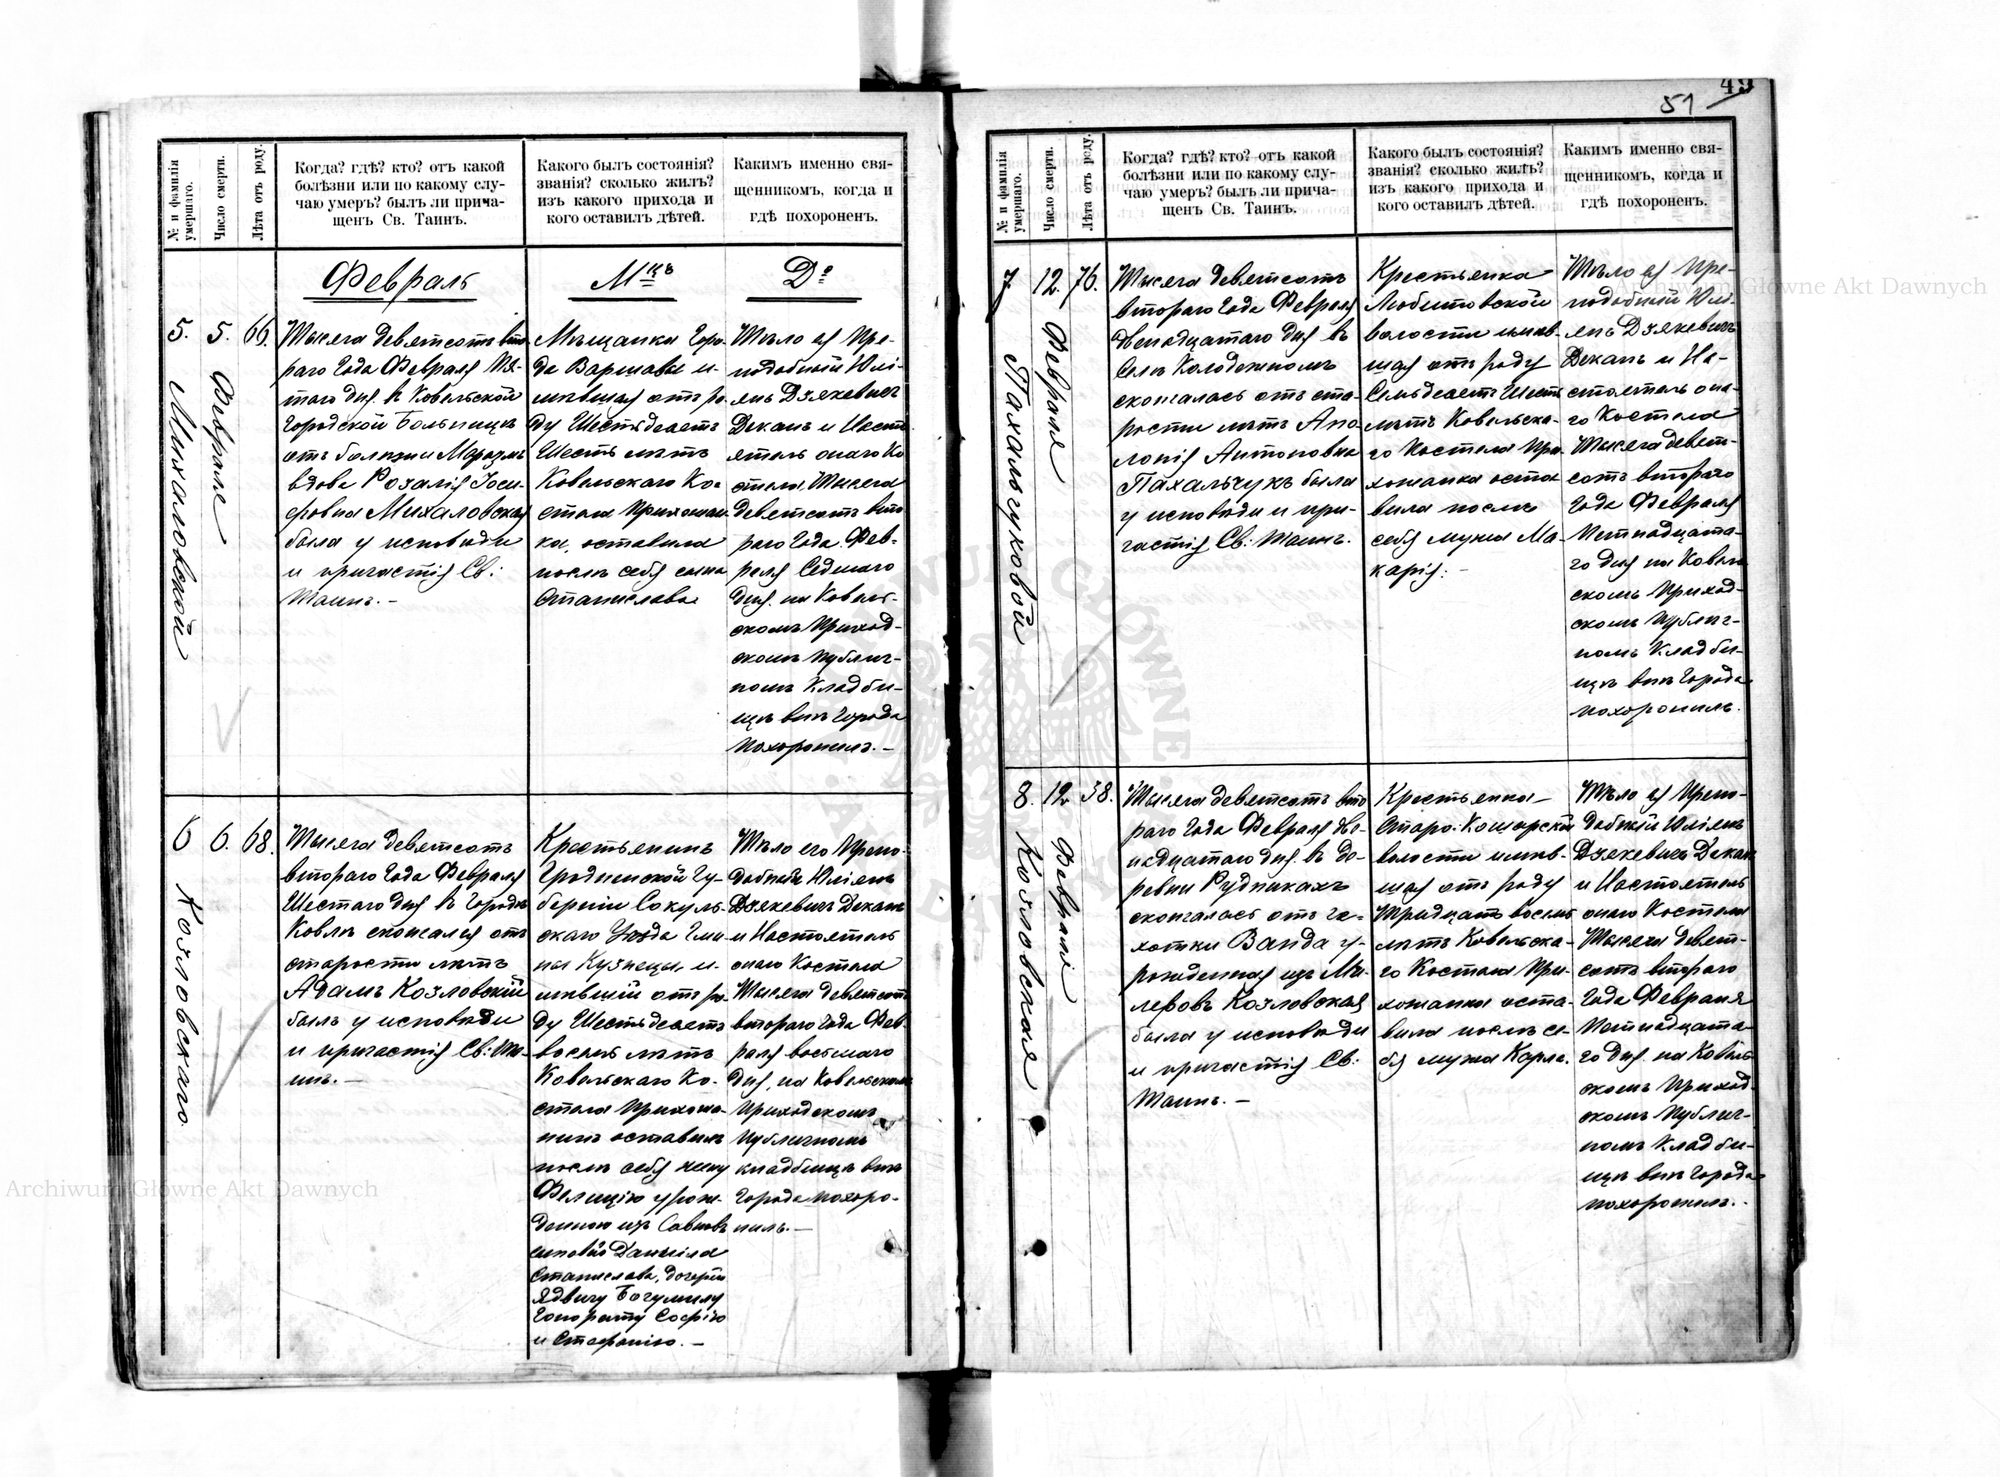 49
51
№ и фамилія умершаго.
Число смерти.
Лѣта отъ роду.
Когда? гдѣ? кто? отъ какой
болѣзни или по какому слу-
чаю умеръ? былъ ли прича-
щенъ Св. Таинъ.
Какого былъ состоянія?
званія? сколько жилъ?
изъ какого прихода и
кого оставилъ дѣтей.
Какимъ именно свя-
щенникомъ, когда и
гдѣ похороненъ.
Февраль
Мцъ
Do
5.
Михаловской
5.
Февраля
66.
Тысяча девятсотъ вто-
раго Года Февраля Пя-
таго дня въ Ковельской
Городской Больницѣ
отъ болѣзни
вдова Розалія Іоси-
фовна Михаловская
была у исповѣди
и причастія Св:
Таинъ. –
Мѣщанка Горо-
да Варшавы и-
мѣвшая отъ ро-
ду Шестьдесятъ
Шесть лѣтъ
Ковельскаго Ко-
стела Прихожан-
ка, оставила
послѣ себя сына
Станислава
Тѣло ея Пре-
подобній Юлі-
янъ Дзякевичъ
Деканъ и Насто-
ятель онаго Ко-
стела, Тысяча
девятсотъ вто-
раго Года Фев-
раля Седьмаго
дня на Ковель-
скомъ Приход-
скомъ Публич-
номъ Кладби-
щѣ внѣ Города
похоронилъ. –
6
Козловскаго
6.
68.
Тысяча девятсотъ
втораго Года Февраля
Шестаго дня въ Городѣ
Ковлѣ скончался отъ
старости лѣтъ
Адамъ Козловскій
былъ у исповѣди
и причастія Св: Та-
инъ. –
Крестьянинъ
Гродненской Гу-
берніи Сокуль-
скаго Уѣзда Гми-
ны Кузнецы, и-
мѣвшій отъ ро-
ду Шестьдесятъ
восемь лѣтъ
Ковельскаго Ко-
стела Прихожа-
нинъ оставилъ
послѣ себя жену
Фелицію урож-
денную изъ
сыновей Даніила
Станислава, дочерей
Ядвигу Богумилу
Гонорату Софію
и Стефанію. –
Тѣло его Препо-
добній Юліянъ
Дзякевичъ Деканъ
и Настоятель
онаго Костела
Тысяча девятсотъ
втораго Года Фев-
раля восьмаго
дня, на Ковельскомъ
Приходскомъ
Публичномъ
кладбищѣ внѣ
Города похоро-
нилъ. –
№ и фамилія умершаго.
Число смерти.
Лѣта отъ роду.
Когда? гдѣ? кто? отъ какой
болѣзни или по какому слу-
чаю умеръ? былъ ли прича-
щенъ Св. Таинъ.
Какого былъ состоянія?
званія? сколько жилъ?
изъ какого прихода и
кого оставилъ дѣтей.
Какимъ именно свя-
щенникомъ, когда и
гдѣ похороненъ.
7.
Пахальчуковой
12.
Февраля
76.
Тысяча девятсотъ
втораго Года Февраля
двенадцатаго дня въ
Селѣ Колодежномъ
скончалась отъ ста-
рости лѣтъ Апо-
лонія Антоновна
Пахальчукъ была
у исповѣди и при-
частія Св: Таинъ.
Крестьянка
Любитовской
волости имѣв-
шая отъ роду
Семьдесятъ Шесть
лѣтъ Ковельска-
го Костела При-
хожанка оста-
вила послѣ
себя мужа Ма-
карія: –
Тѣло ея Пре-
подобній Юлі-
янъ Дзякевичъ
Деканъ и На-
стоятель она-
го Костела
Тысяча девят-
сотъ втораго
Года Февраля
Пятнадцата-
го дня на Ковель-
скомъ Приход-
скомъ Публич-
номъ Кладби-
щѣ внѣ Города
похоронилъ.
8.
Козловская
12.
Февраля
38.
Тысяча девятсотъ вто-
раго Года Февраля две-
надцатаго дня въ де-
ревни Рудникахъ
скончалась отъ ча-
хотки Ванда у-
рожденная изъ Ми-
леровъ Козловская
была у исповѣди
и причастія Св:
Таинъ. –
Крестьянка –
Старо-Кошарской
волости имѣв-
шая отъ роду
Тридцать восемь
лѣтъ Ковельска-
го Костела При-
хожанка оста-
вила послѣ се-
бя мужа Карла.
Тѣло ея Препо-
добній Юліянъ
Дзякевичъ Деканъ
и Настоятель
онаго Костела
Тысяча девят-
сотъ втораго
Года Февраля
Пятнадцата-
го дня на Ковель-
скомъ Приход-
скомъ Публич-
номъ Кладби-
щѣ внѣ Города
похоронилъ. –
Archiwum Główne Akt Dawnych
Archiwum Główne Akt Dawnych